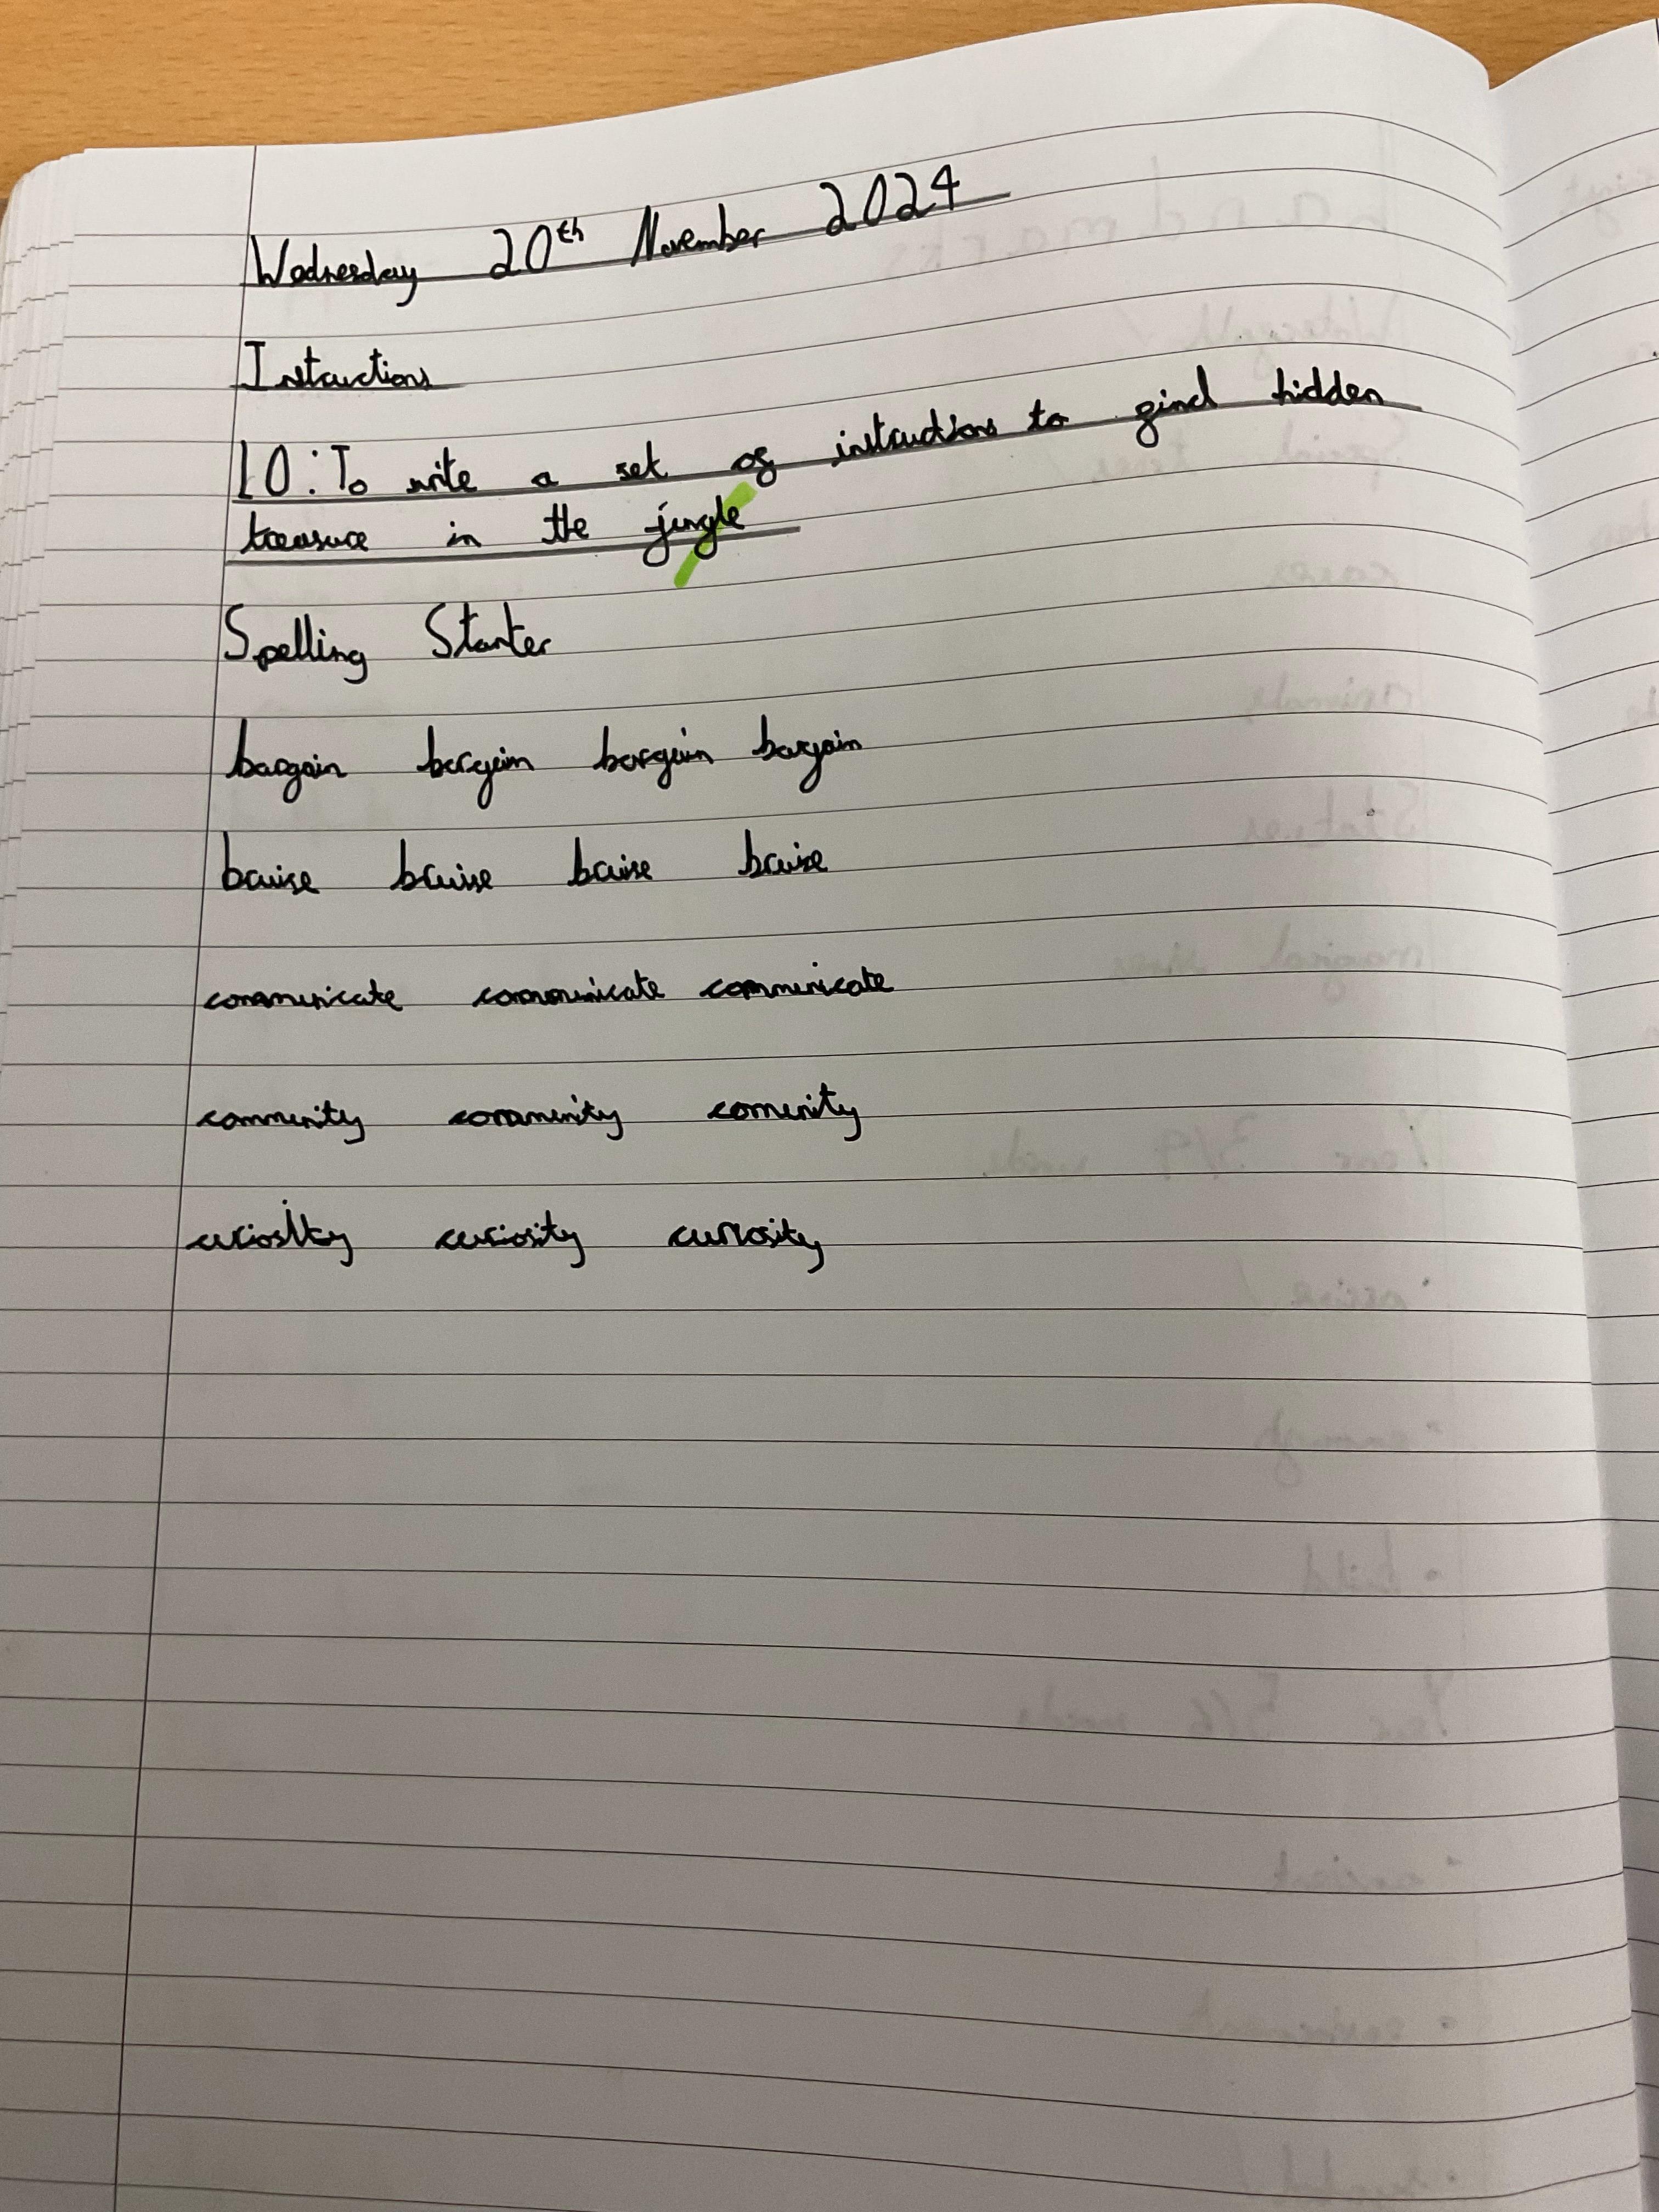 Wednesday 20th November 2024
Instructions
LO: To write a set of instructions to find hidden
treasure in the jungle
Spelling Starter
bargain bargain bargain bargain
bruise bruise bruise bruise
communicate communicate communicate
community community comunity
curiosity curiosity curiosity